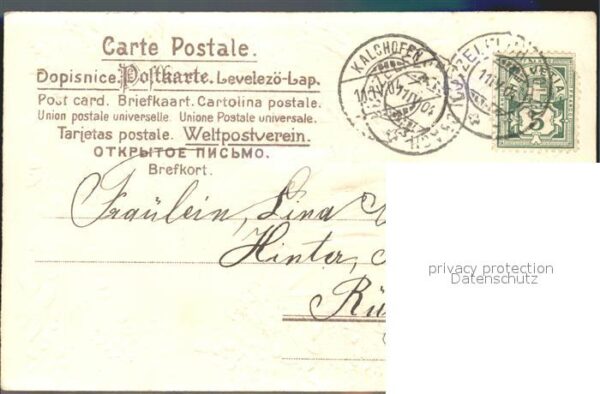 Carte Postale.
Dopisnice. Postkarte. Levelező-Lap.
Post card. Briefkaart. Cartolina postale.
Union postale universelle. Unione Postale universale.
Tarjetas postale. Weltpostverein.
ОТКРЫТОЕ ПИСЬМО.
Brefkort.
KALCHOFEN
HELVETIA
5
Fräulein, Lina
Hinter,
Rü
privacy protection
Datenschutz